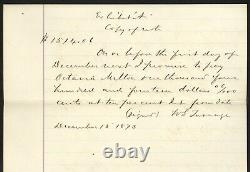 Exhibit "A"
Copy of note
$1514.06
On or before the first day of
December next I promise to pay
Octavia Miller one thousand five
hundred and fourteen dollars 6/100
cents at ten percent Int from date
(signed) W S
December 15 1893